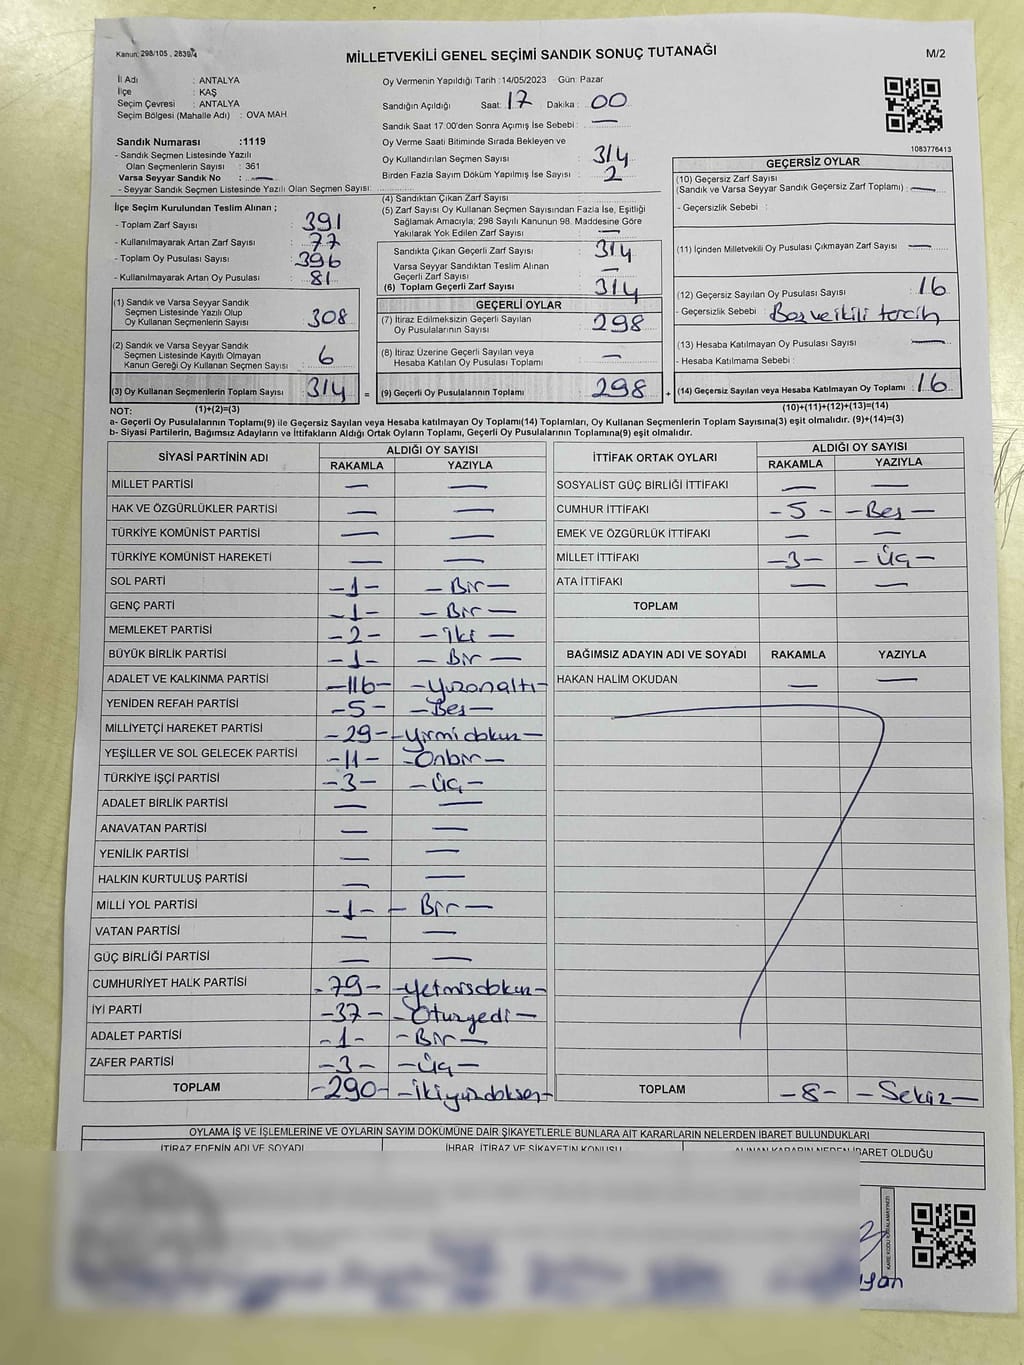 Kanun: 298/105 , 2839/4
MİLLETVEKİLİ GENEL SEÇİMİ SANDIK SONUÇ TUTANAĞI
M/2
İl Adı : ANTALYA
İlçe : KAŞ
Seçim Çevresi : ANTALYA
Seçim Bölgesi (Mahalle Adı) : OVA MAH
Oy Vermenin Yapıldığı Tarih :14/05/2023 Gün: Pazar
Sandığın Açıldığı Saat: 17 Dakika: 00
Sandık Saat 17:00'den Sonra Açımış İse Sebebi : —
1083776413
Sandık Numarası :1119
- Sandık Seçmen Listesinde Yazılı
Olan Seçmenlerin Sayısı : 361
Varsa Seyyar Sandık No : —
- Seyyar Sandık Seçmen Listesinde Yazılı Olan Seçmen Sayısı:
Oy Verme Saati Bitiminde Sırada Bekleyen ve
Oy Kullandırılan Seçmen Sayısı : 314
Birden Fazla Sayım Döküm Yapılmış İse Sayısı : 2
İlçe Seçim Kurulundan Teslim Alınan ;
- Toplam Zarf Sayısı : 391
- Kullanılmayarak Artan Zarf Sayısı : 77
- Toplam Oy Pusulası Sayısı : 396
- Kullanılmayarak Artan Oy Pusulası : 81
(1) Sandık ve Varsa Seyyar Sandık
Seçmen Listesinde Yazılı Olup
Oy Kullanan Seçmenlerin Sayısı : 308
(2) Sandık ve Varsa Seyyar Sandık
Seçmen Listesinde Kayıtlı Olmayan
Kanun Gereği Oy Kullanan Seçmen Sayısı : 6
(3) Oy Kullanan Seçmenlerin Toplam Sayısı : 314
(1)+(2)=(3)
(4) Sandıktan Çıkan Zarf Sayısı :
(5) Zarf Sayısı Oy Kullanan Seçmen Sayısından Fazla İse, Eşitliği
Sağlamak Amacıyla; 298 Sayılı Kanunun 98. Maddesine Göre
Yakılarak Yok Edilen Zarf Sayısı : —
Sandıkta Çıkan Geçerli Zarf Sayısı : 314
Varsa Seyyar Sandıktan Teslim Alınan
Geçerli Zarf Sayısı : —
(6) Toplam Geçerli Zarf Sayısı : 314
GEÇERLİ OYLAR
(7) İtiraz Edilmeksizin Geçerli Sayılan
Oy Pusulalarının Sayısı : 298
(8) İtiraz Üzerine Geçerli Sayılan veya
Hesaba Katılan Oy Pusulası Toplamı : —
= (9) Geçerli Oy Pusulalarının Toplamı : 298
GEÇERSİZ OYLAR
(10) Geçersiz Zarf Sayısı
(Sandık ve Varsa Seyyar Sandık Geçersiz Zarf Toplamı) : —
- Geçersizlik Sebebi :
(11) İçinden Milletvekili Oy Pusulası Çıkmayan Zarf Sayısı : —
(12) Geçersiz Sayılan Oy Pusulası Sayısı : 16
- Geçersizlik Sebebi : Boş ve ikili tercih
(13) Hesaba Katılmayan Oy Pusulası Sayısı : —
- Hesaba Katılmama Sebebi :
+ (14) Geçersiz Sayılan veya Hesaba Katılmayan Oy Toplamı : 16
(10)+(11)+(12)+(13)=(14)
NOT:
a- Geçerli Oy Pusulalarının Toplamı(9) ile Geçersiz Sayılan veya Hesaba katılmayan Oy Toplamı(14) Toplamları, Oy Kullanan Seçmenlerin Toplam Sayısına(3) eşit olmalıdır. (9)+(14)=(3)
b- Siyasi Partilerin, Bağımsız Adayların ve İttifakların Aldığı Ortak Oyların Toplamı, Geçerli Oy Pusulalarının Toplamına(9) eşit olmalıdır.
SİYASİ PARTİNİN ADI ALDIĞI OY SAYISI
RAKAMLA YAZIYLA
MİLLET PARTİSİ — —
HAK VE ÖZGÜRLÜKLER PARTİSİ — —
TÜRKİYE KOMÜNİST PARTİSİ — —
TÜRKİYE KOMÜNİST HAREKETİ — —
SOL PARTİ -1- -Bir-
GENÇ PARTİ -1- -Bir-
MEMLEKET PARTİSİ -2- -İki-
BÜYÜK BİRLİK PARTİSİ -1- -Bir-
ADALET VE KALKINMA PARTİSİ -116- -Yüzonaltı-
YENİDEN REFAH PARTİSİ -5- -Beş-
MİLLİYETÇİ HAREKET PARTİSİ -29- -Yirmidokuz-
YEŞİLLER VE SOL GELECEK PARTİSİ -11- -Onbir-
TÜRKİYE İŞÇİ PARTİSİ -3- -Üç-
ADALET BİRLİK PARTİSİ — —
ANAVATAN PARTİSİ — —
YENİLİK PARTİSİ — —
HALKIN KURTULUŞ PARTİSİ — —
MİLLİ YOL PARTİSİ -1- -Bir-
VATAN PARTİSİ — —
GÜÇ BİRLİĞİ PARTİSİ — —
CUMHURİYET HALK PARTİSİ -79- -Yetmişdokuz-
İYİ PARTİ -37- -Otuzyedi-
ADALET PARTİSİ -1- -Bir-
ZAFER PARTİSİ -3- -Üç-
TOPLAM -290- -İkiyüzdoksan-
İTTİFAK ORTAK OYLARI ALDIĞI OY SAYISI
RAKAMLA YAZIYLA
SOSYALİST GÜÇ BİRLİĞİ İTTİFAKI — —
CUMHUR İTTİFAKI -5- -Beş-
EMEK VE ÖZGÜRLÜK İTTİFAKI — —
MİLLET İTTİFAKI -3- -Üç-
ATA İTTİFAKI — —
TOPLAM
BAĞIMSIZ ADAYIN ADI VE SOYADI RAKAMLA YAZIYLA
HAKAN HALIM OKUDAN — —
TOPLAM -8- -Sekiz-
OYLAMA İŞ VE İŞLEMLERİNE VE OYLARIN SAYIM DÖKÜMÜNE DAİR ŞİKAYETLERLE BUNLARA AİT KARARLARIN NELERDEN İBARET BULUNDUKLARI
İTİRAZ EDENİN ADI VE SOYADI İHBAR, İTİRAZ VE ŞİKAYETİN KONUSU ALINAN KARARIN NEDEN İBARET OLDUĞU